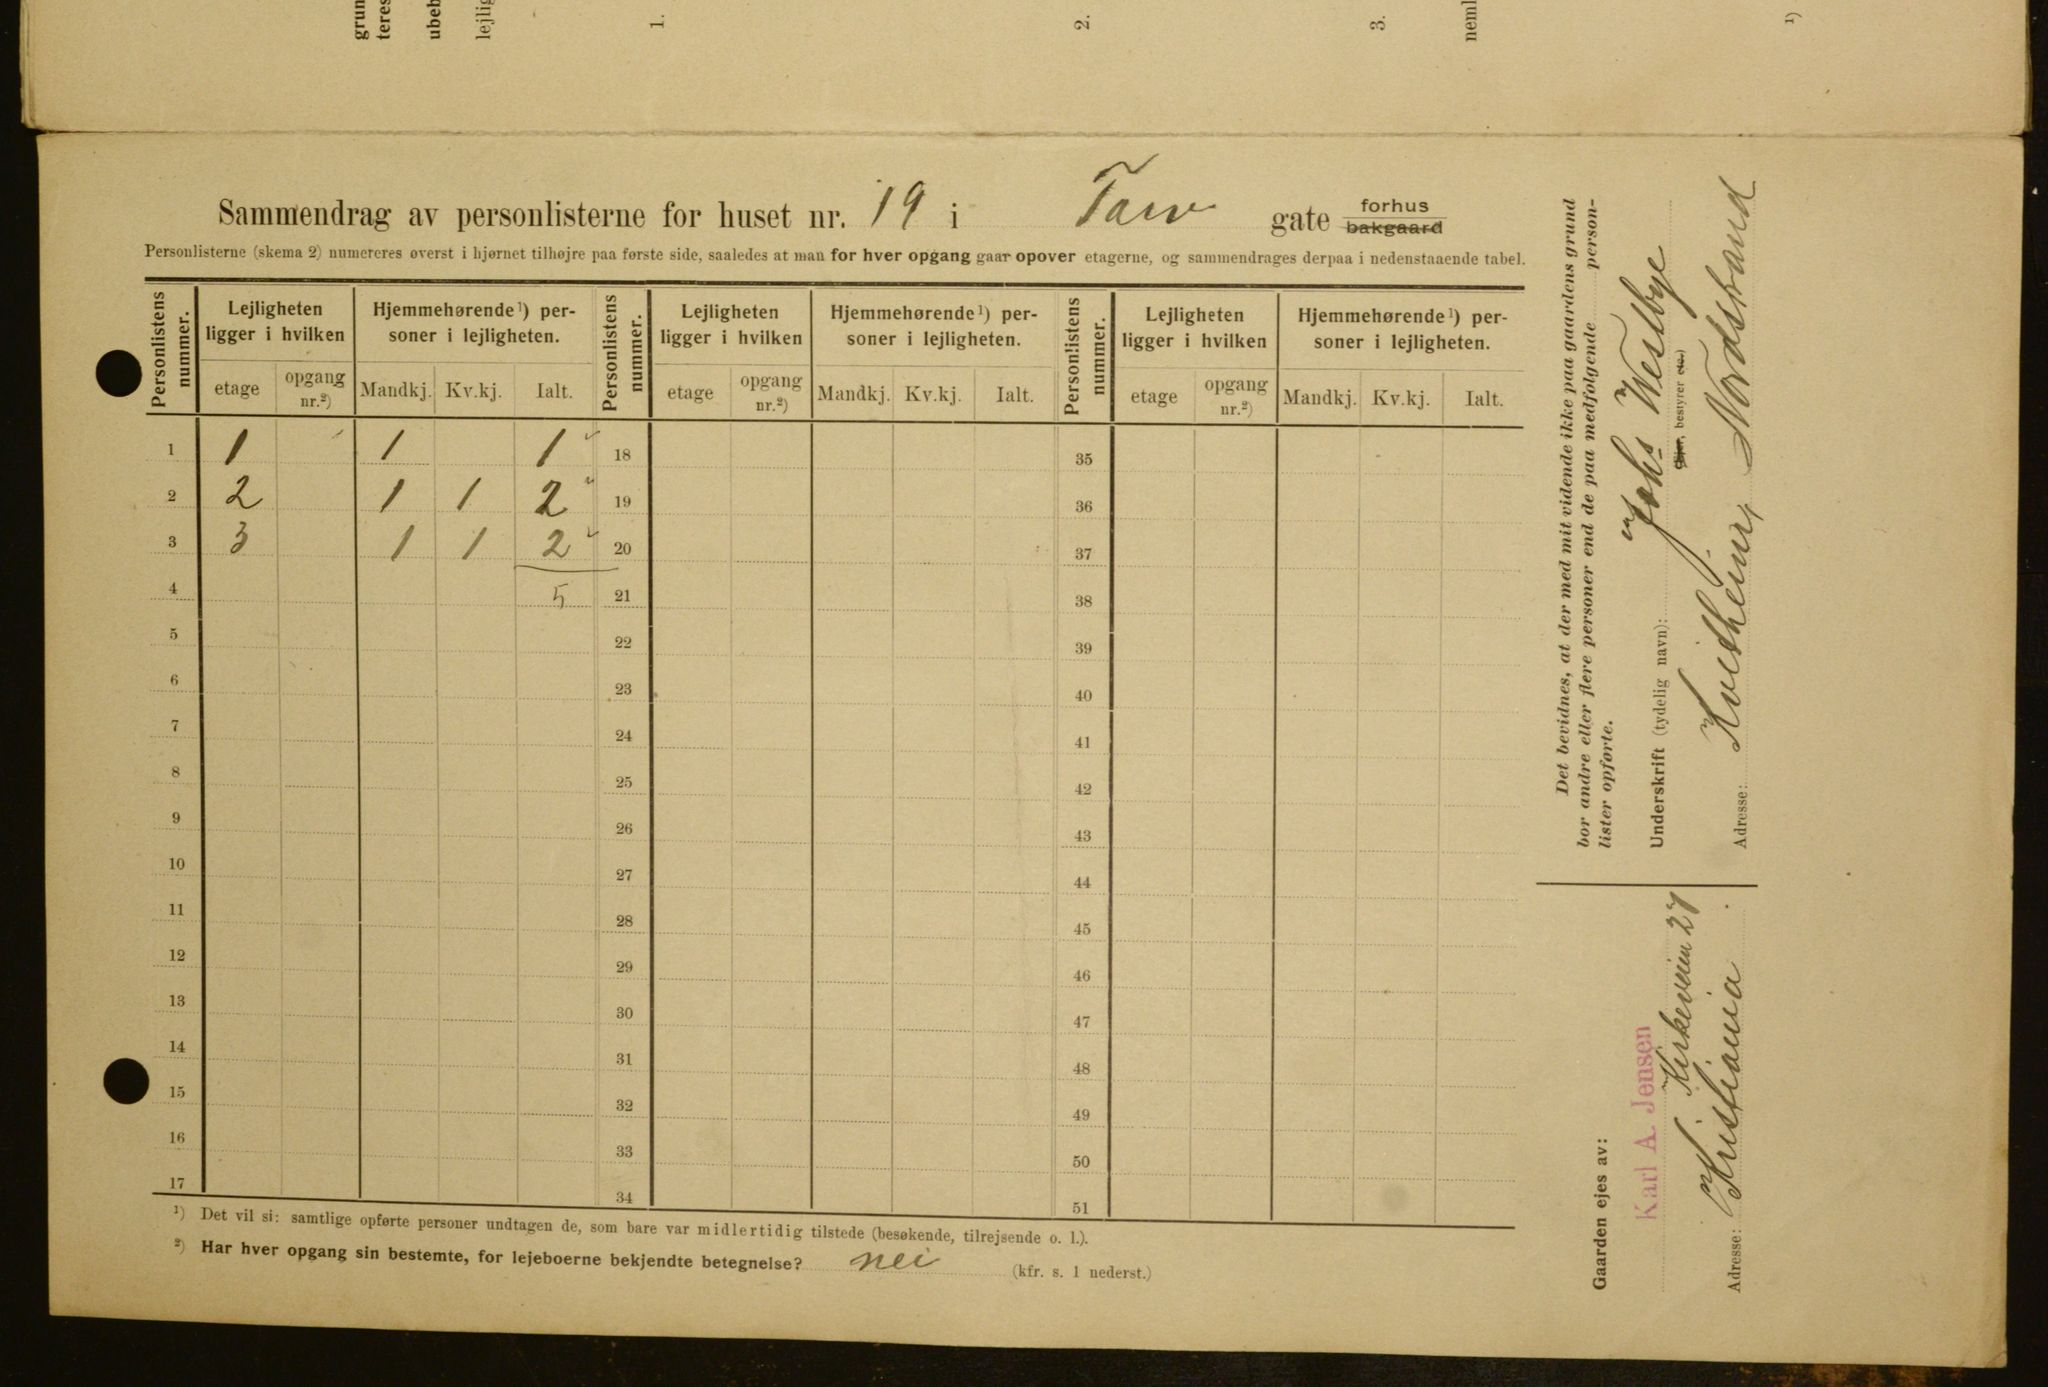 grun
teres
ubeb
lejlig
1.
2.
3.
neml
1)
Sammendrag av personlisterne for huset nr. 19 i Torv gate forhus bakgaard
Personlisterne (skema 2) numereres øverst i hjørnet tilhøjre paa første side, saaledes at man for hver opgang gaar opover etagerne, og sammendrages derpaa i nedenstaaende tabel.
Personlistens nummer. Lejligheten ligger i hvilken Hjemmehørende 1) personer i lejligheten. Personlistens nummer. Lejligheten ligger i hvilken Hjemmehørende 1) personer i lejligheten. Personlistens nummer. Lejligheten ligger i hvilken Hjemmehørende 1) personer i lejligheten.
etage opgang nr.2) Mandkj. Kv.kj. Ialt. etage opgang nr.2) Mandkj. Kv.kj. Ialt. etage opgang nr.2) Mandkj. Kv.kj. Ialt.
1 1 1 1 18 35
2 2 1 1 2 19 36
3 3 1 1 2 20 37
4 5 21 38
5 22 39
6 23 40
7 24 41
8 25 42
9 26 43
10 27 44
11 28 45
12 29 46
13 30 47
14 31 48
15 32 49
16 33 50
17 34 51
1) Det vil si: samtlige opførte personer undtagen de, som bare var midlertidig tilstede (besøkende, tilrejsende o. l.).
2) Har hver opgang sin bestemte, for lejeboerne bekjendte betegnelse? nei (kfr. s. 1 nederst.)
Det bevidnes, at der med mit vidende ikke paa gaardens grund
bor andre eller flere personer end de paa medfølgende person-
lister opførte.
Underskrift (tydelig navn): Johs Westbye
Eier, bestyrer etc.)
Adresse: Kvitheim, Nordstrand
Gaarden ejes av:
Karl A. Jensen
Kirkeveien 27
Adresse: Kristiania